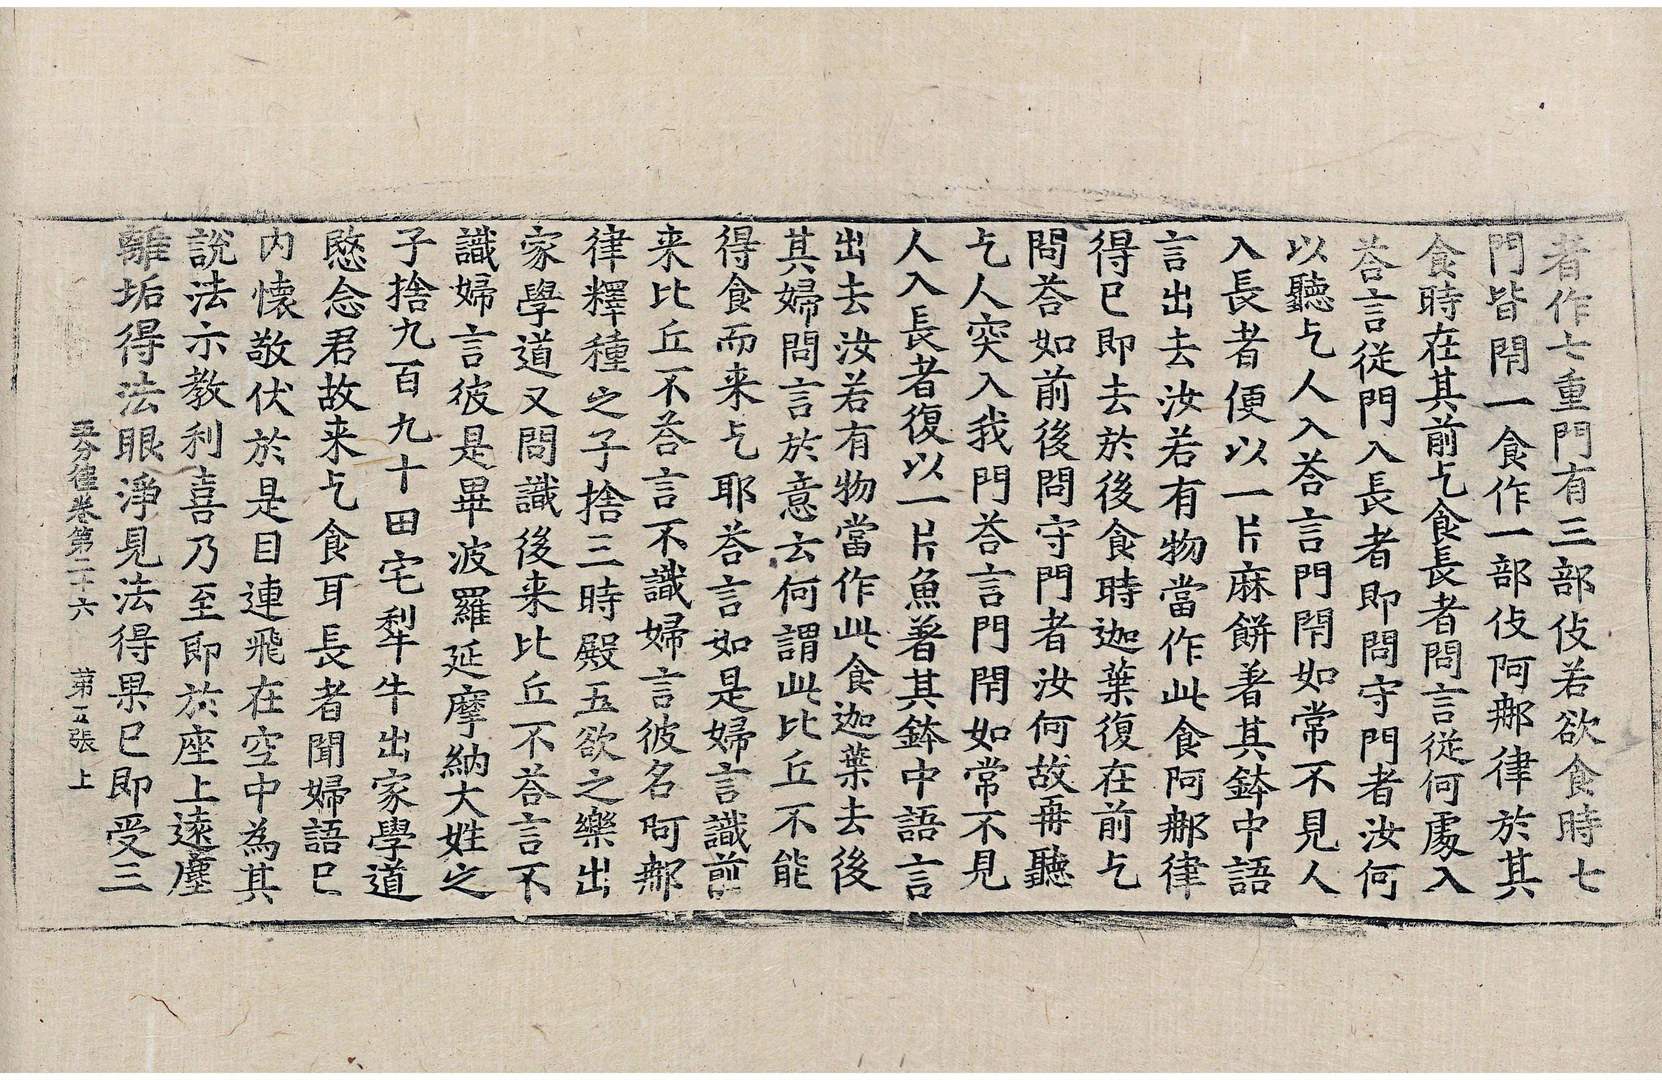 者作七重門有三部伎若欲食時七
門皆閇一食作一部伎阿𨚗律於其
食時在其前乞食長者問言從何處入
荅言從門入長者即問守門者汝何
以聽乞人入荅言門閇如常不見人
入長者便以一片麻餅著其鉢中語
言出去汝若有物當作此食阿𨚗律
得已即去於後食時迦葉復在前乞
問荅如前後問守門者汝何故再聽
乞人突入我門荅言門閇如常不見
人入長者復以一片魚著其鉢中語言
出去汝若有物當作此食迦葉去後
其婦問言於意云何謂此比丘不能
得食而来乞耶荅言如是婦言識前
来比丘不荅言不識婦言彼名阿𨚗
律釋種之子捨三時殿五欲之樂出
家學道又問識後来比丘不荅言不
識婦言彼是畢波羅延摩納大姓之
子捨九百九十田宅犁牛出家學道
愍念君故来乞食耳長者聞婦語已
内懷敬伏於是目連飛在空中為其
說法示教利喜乃至即於座上遠塵
離垢得法眼淨見法得果已即受三
五分律卷第二十六 苐五張 上